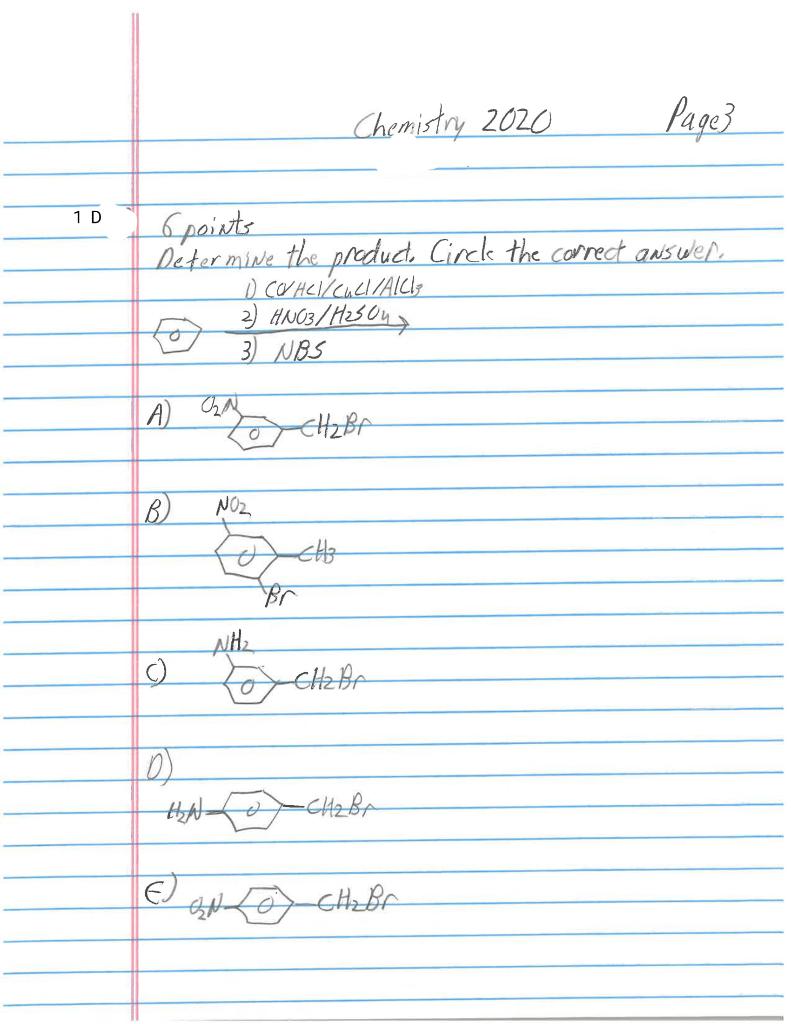 Chemistry 2020 Page3
1 D
6 points
Determine the product. Circle the correct answer.
1) CO/HCl/CuCl/AlCl3
2) HNO3/H2SO4
3) NBS
A) O2N CH2Br
B) NO2
CH3
Br
NH2
C) CH2Br
D)
H2N CH2Br
E) O2N CH2Br